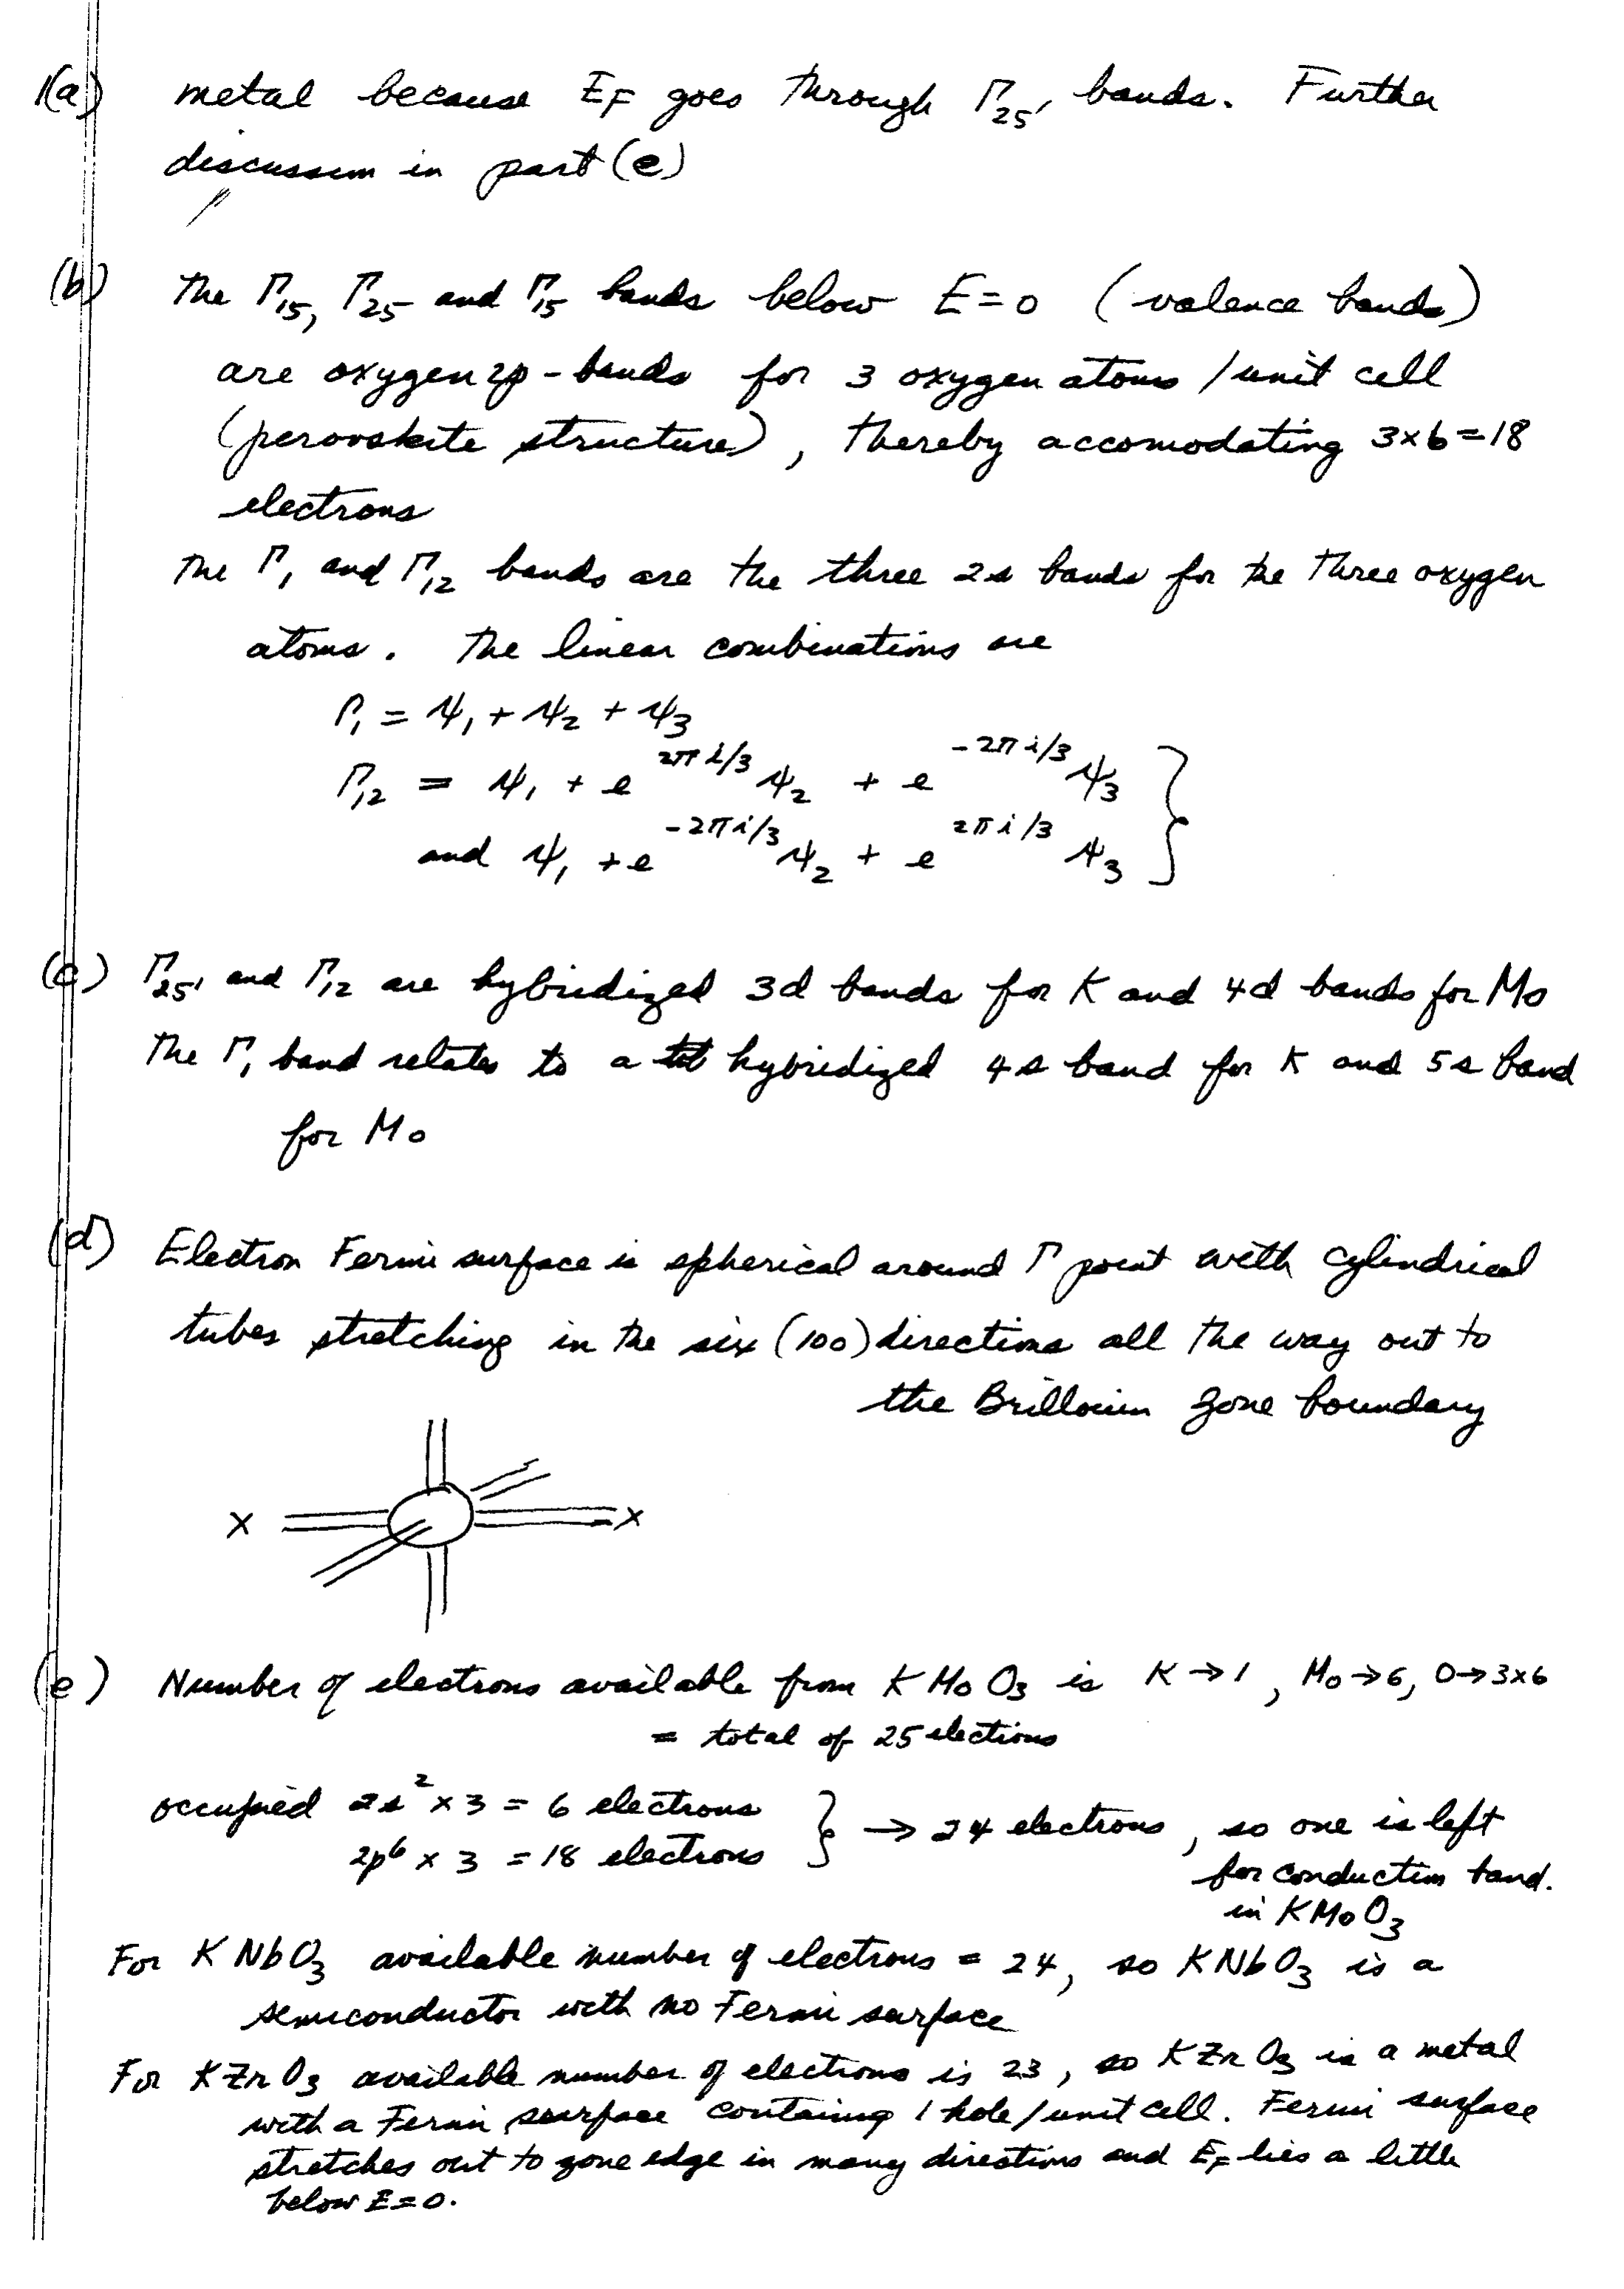 1(a) metal because E_F goes through Γ_25' bands. Further
discussion in part (e)
(b) The Γ_15, Γ_25 and Γ_15 bands below E=0 (valence bands)
are oxygen 2p-bands for 3 oxygen atoms/unit cell
(perovskite structure), thereby accomodating 3×6=18
electrons
The Γ_1 and Γ_12 bands are the three 2s bands for the three oxygen
atoms. The linear combinations are
Γ_1 = ψ_1 + ψ_2 + ψ_3
Γ_12 = ψ_1 + e^{2πi/3} ψ_2 + e^{-2πi/3} ψ_3 }
and ψ_1 + e^{-2πi/3} ψ_2 + e^{2πi/3} ψ_3
(c) Γ_25' and Γ_12 are hybridized 3d bands for K and 4d bands for Mo
The Γ_1 band relates to a hybridized 4s band for K and 5s band
for Mo
(d) Electron Fermi surface is spherical around Γ point with cylindrical
tubes stretching in the six (100) directions all the way out to
the Brillouin zone boundary
X X
(e) Number of electrons available from KMoO_3 is K→1, Mo→6, O→3×6
= total of 25 electrons
occupied 2s^2 × 3 = 6 electrons } → 24 electrons, so one is left
2p^6 × 3 = 18 electrons for conduction band.
in KMoO_3
For KNbO_3 available number of electrons = 24, so KNbO_3 is a
semiconductor with no Fermi surface
For KZrO_3 available number of electrons is 23, so KZrO_3 is a metal
with a Fermi surface containing 1 hole/unit cell. Fermi surface
stretches out to zone edge in many directions and E_F lies a little
below E=0.